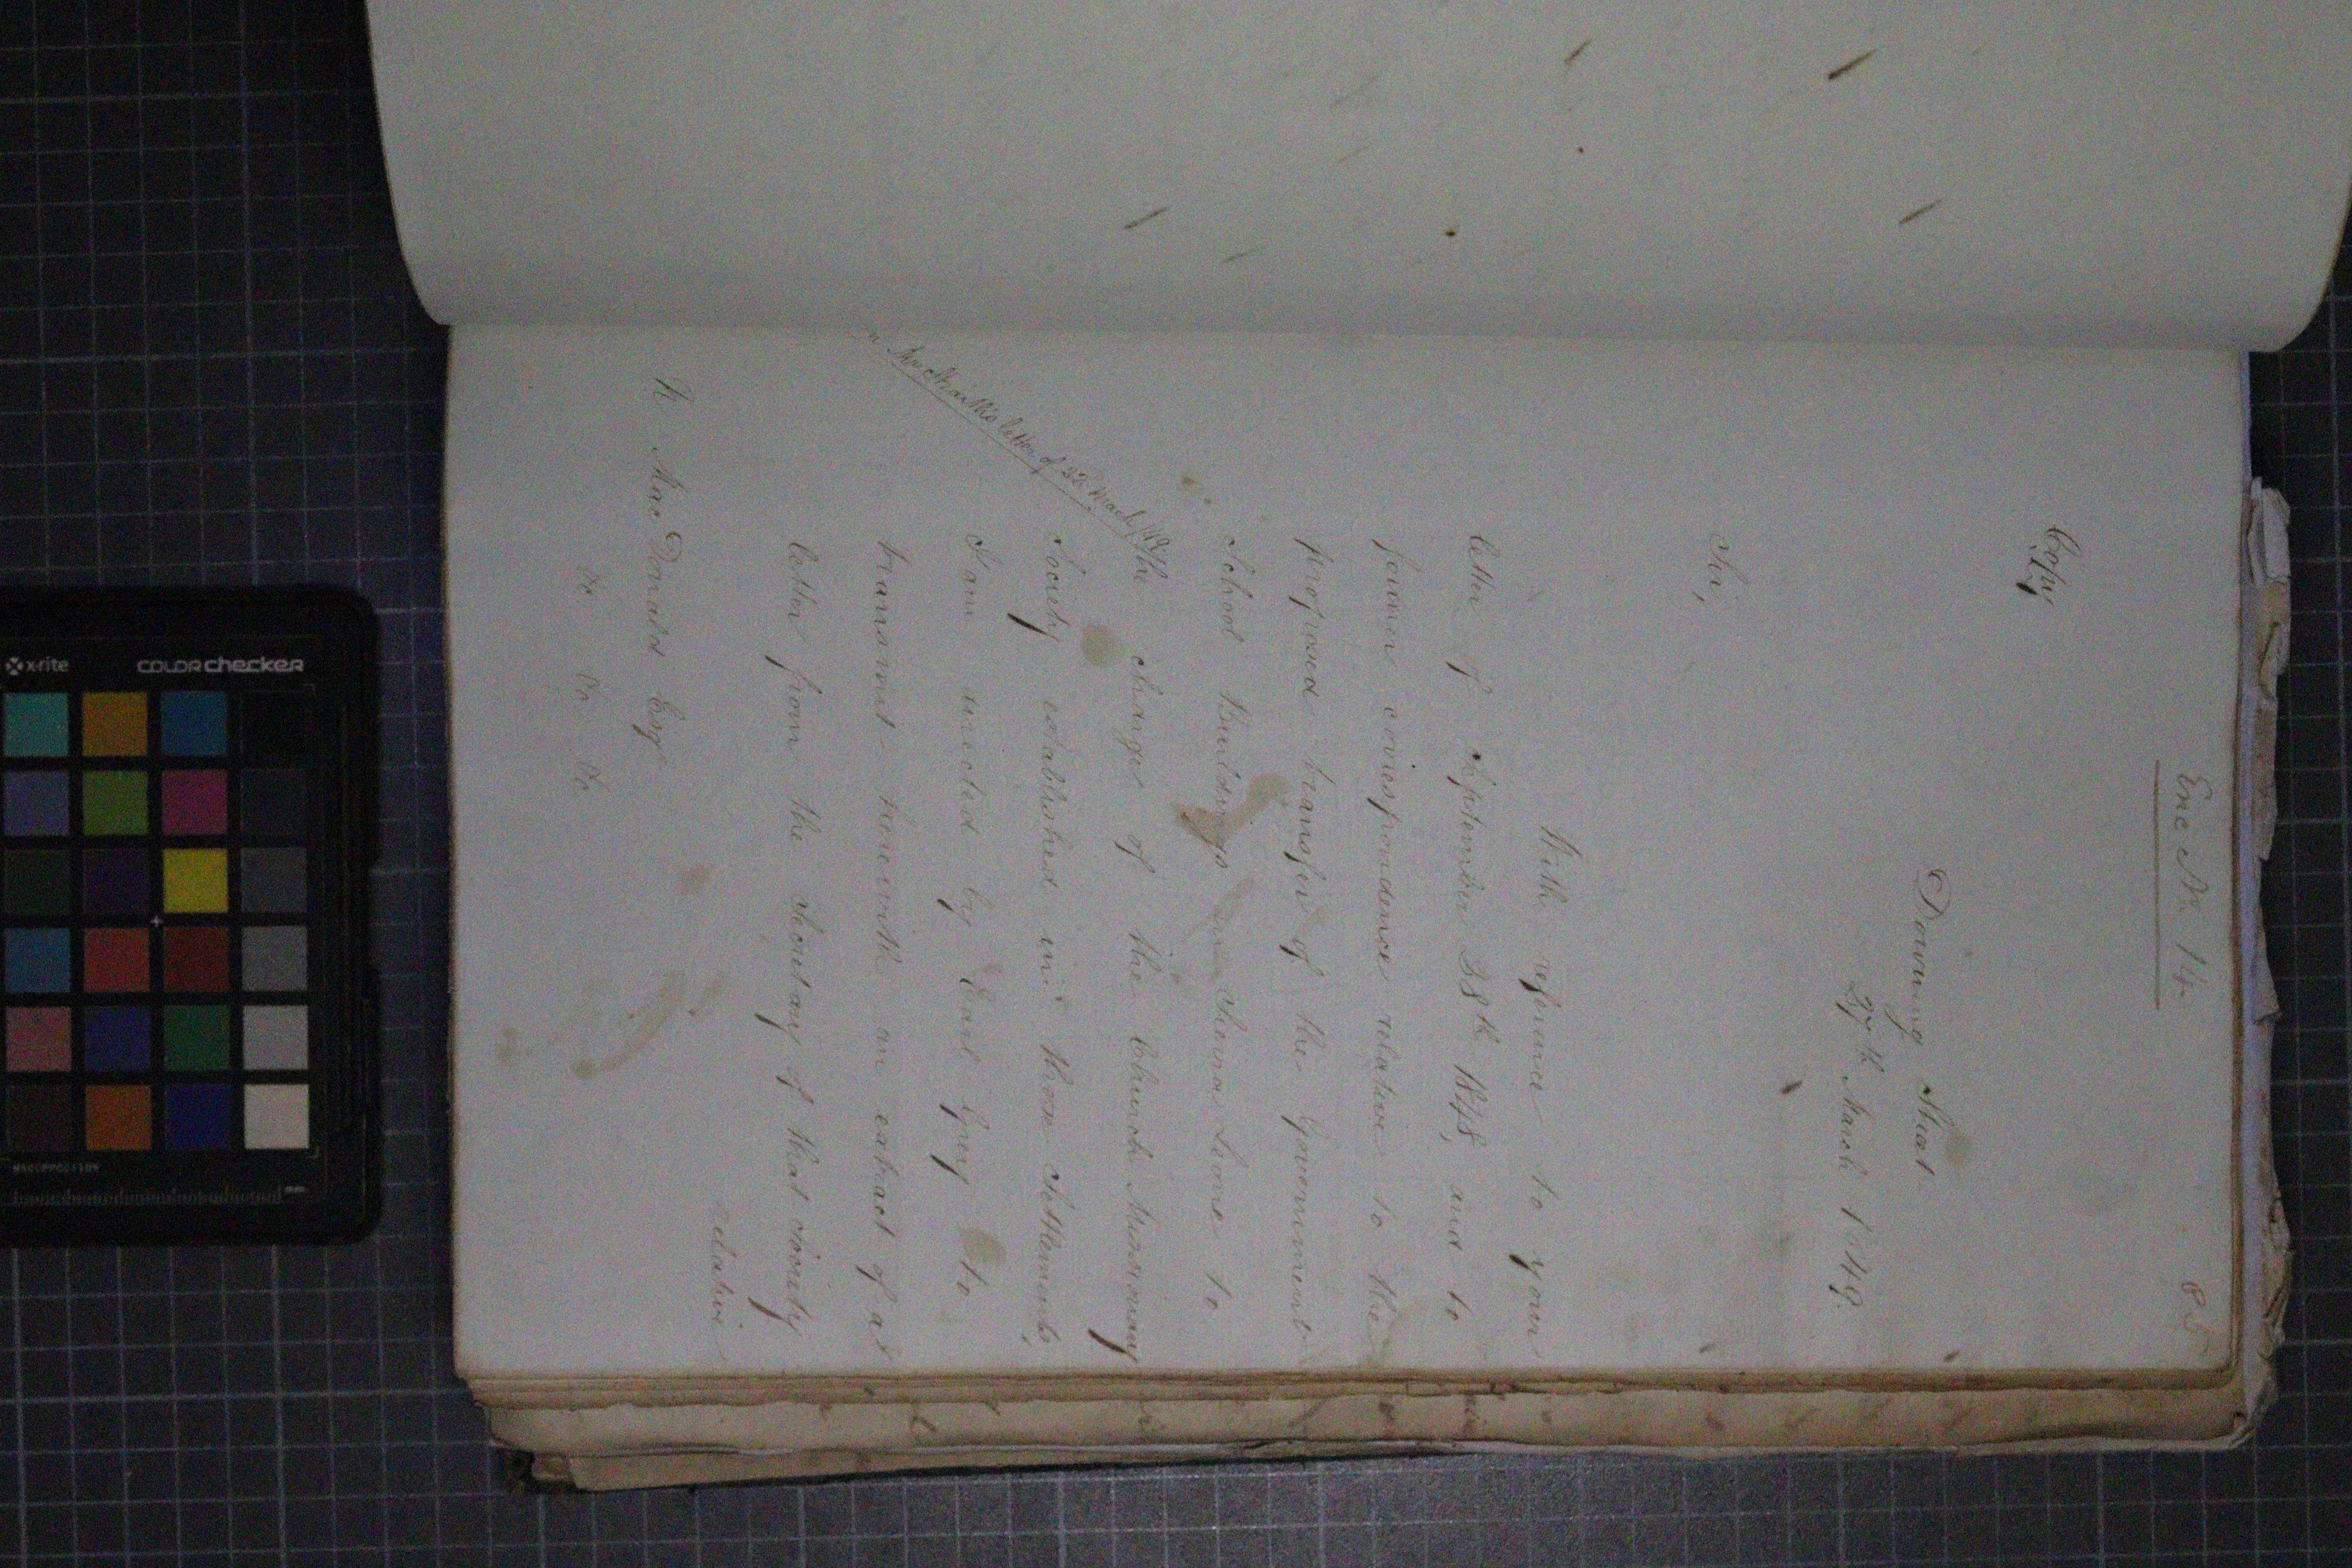 85
Enc No. 14
Copy,
Downing Street
27th March 1849.
Sir,
With reference to your
letter of September 28th 1848, and to
former correspondence relative to the
proposed transfer of the Government
School Buildings in Sierra Leone to
the charge of the Church Missionary
Society established in those Settlements,
I am directed by Earl Grey to
transmit herewith an extract of a
letter from the Secretary of that Society
relative
letter of 22d March/49
N MacDonald Esqr
&c &c &c
x-rite
COLORchecker